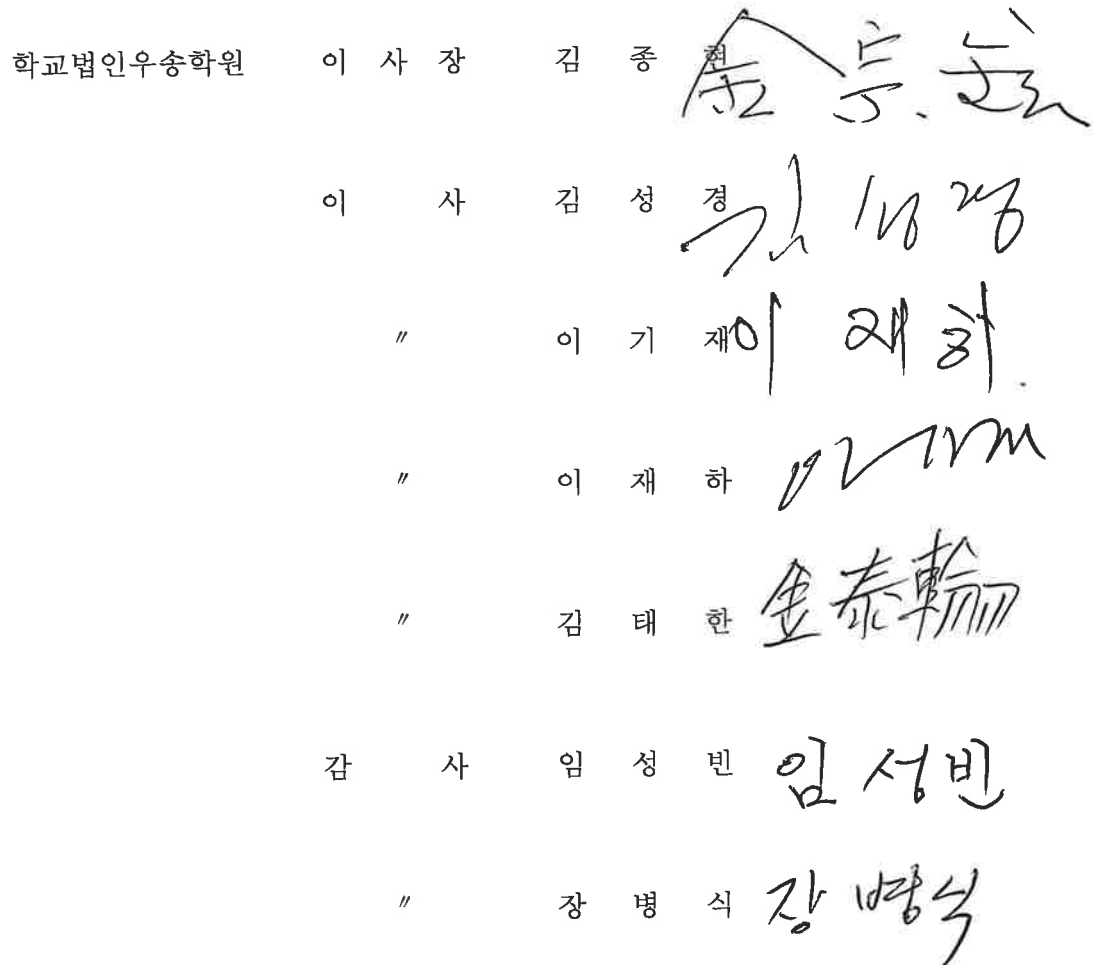 학교법인우송학원 이 사 장 김 종 현 金 宗
이 사 김 성 경 김 성경
〃 이 기 재 이 재 하
〃 이 재 하
〃 김 태 한 金 泰 輪
감 사 임 성 빈 임 성 빈
〃 장 병 식 장 병 식